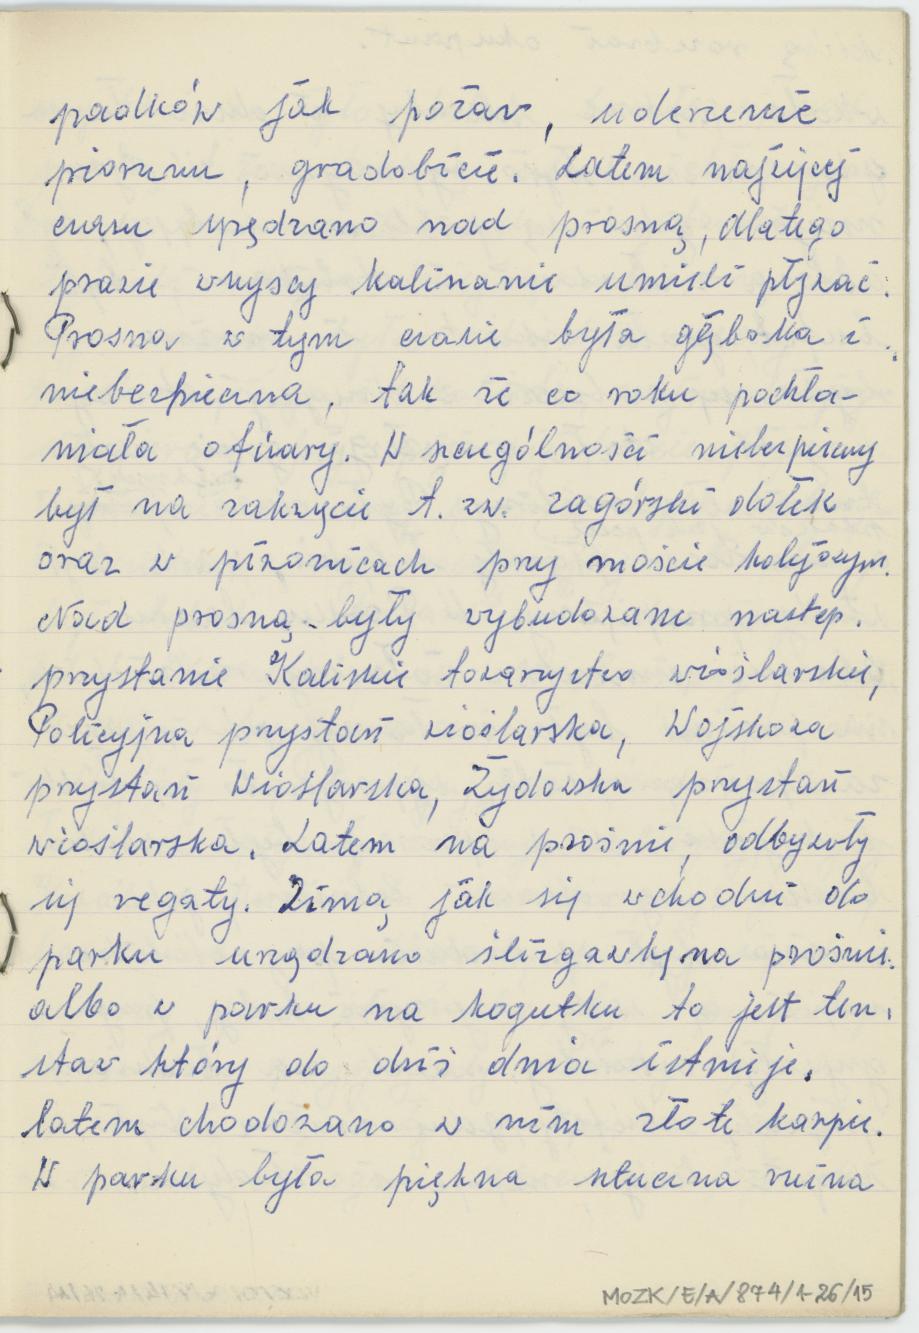 padków jak pożar, uderzenie
piorunu, gradobicie. Latem najwięcej
czasu spędzano nad prosną, dlatego
prazie wszyscy kaliszanie umieli pływać.
Prosna w tym czasie była głęboka i
niebezpieczna, tak że co roku pochła-
niała ofiary. W szczególności niebezpieczny
był na zakręcie t. zw. zagórski dołek
oraz w piwonicach przy moście kolejowym.
Nad prosną - były wybudowane nastep.
przystanie Kaliskie towarzystwo wioślarskie,
Policyjna przystań wioślarska, Wojskowa
przystań Wioślarska, Żydowska przystań
wioślarska. Latem na prośnie, odbywały
się regaty. Zimą jak się wchodzi do
parku urządzano ślizgawkę na prośnie.
albo w parku na kogutku to jest ten
staw który do dziś dnia istnieje.
latem chodowano w nim złote karpie.
W parku była piękna sztuczna ruina
MOZK/E/A/874/1-26/15